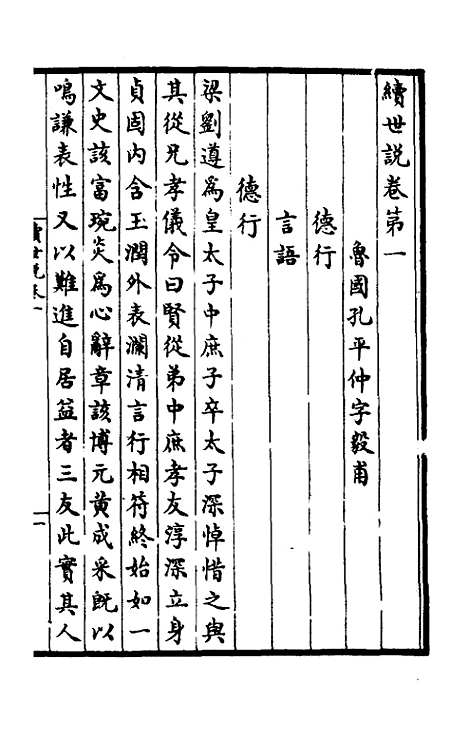 續世說卷第一
魯國孔平仲字毅甫
德行
言語
德行
梁劉遵為皇太子中庶子卒太子深悼惜之與
其從兄孝儀令曰賢從弟中庶孝友淳深立身
貞固内含玉潤外表瀾清言行相符終始如一
文史該富琬炎為心辭章該博元黄成采旣以
鳴謙表性又以難進自居益者三友此實其人
續世說卷一
一